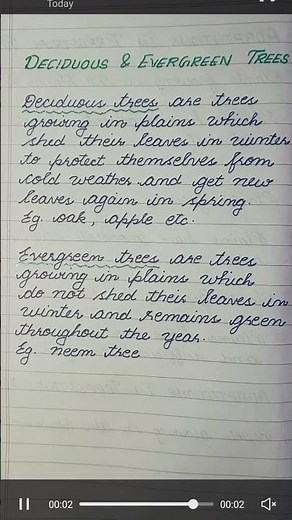 Today
DECIDUOUS & EVERGREEN TREES
Deciduous trees are trees
growing in plains which
shed their leaves in winter
to protect themselves from
cold weather and get new
leaves again in spring.
Eg. oak, apple etc.
Evergreen trees are trees
growing in plains which
do not shed their leaves in
winter and remains green
throughout the year.
Eg. neem tree
00:02
00:02